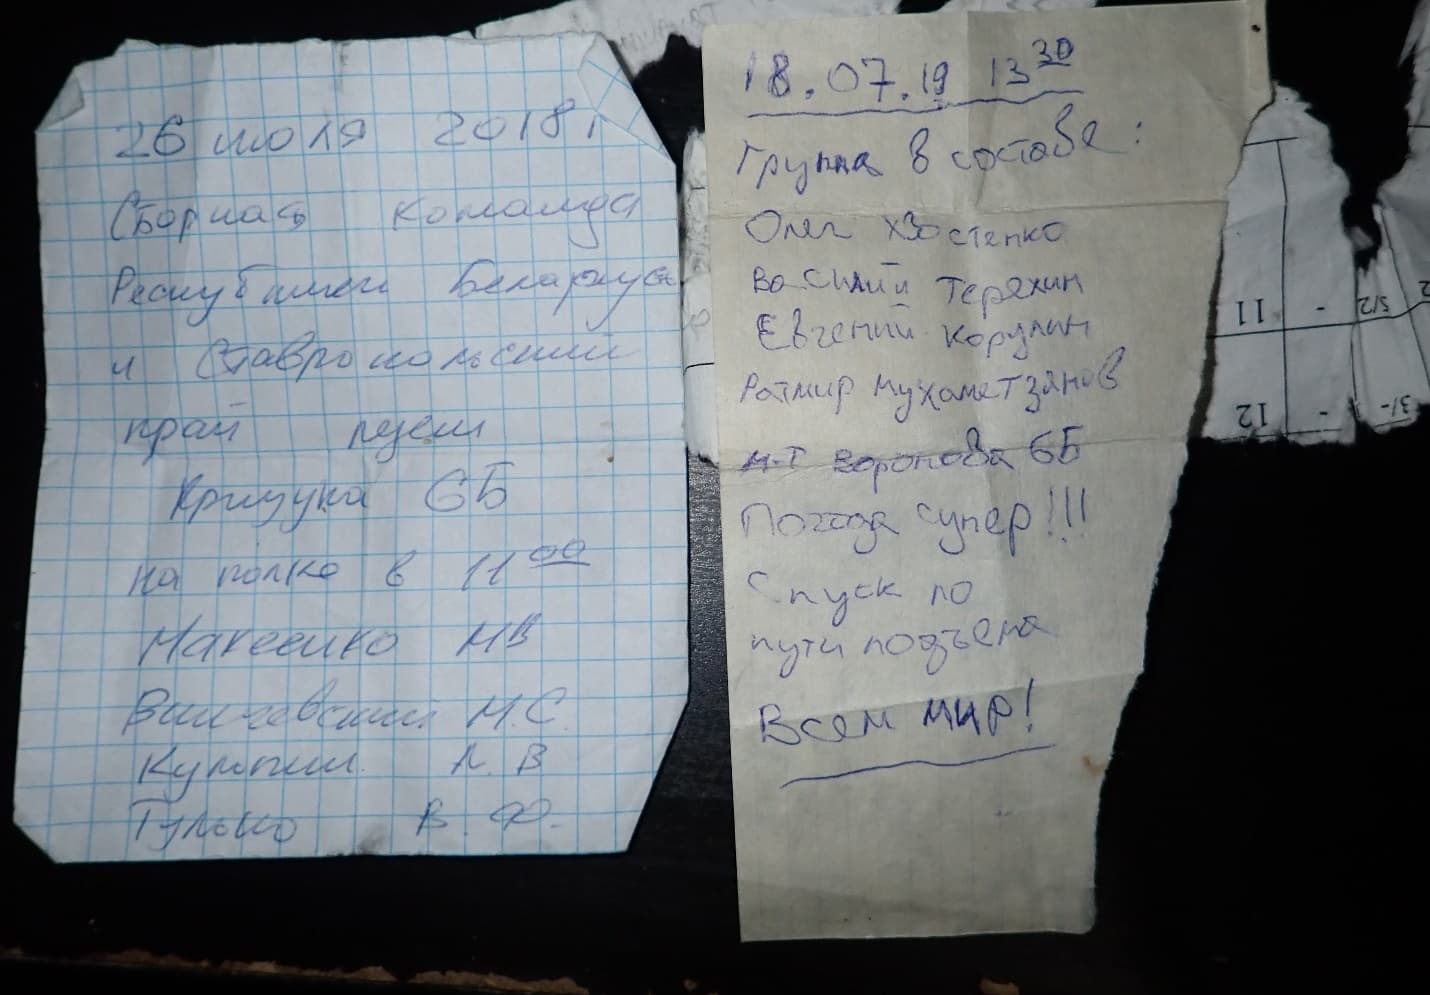 26 июля 2018 г
Сборная команда
Республики Беларусь
и Ставропольский
край
6Б
на полке в 11 00
Макеенко МВ
М.С.
Кулагин В
Гулько В. Ф.
18.07.19 13 30
Группа в составе:
Олег Хвостенко
Василий Терехин
Евгений Корулин
Ратмир Мухаметзянов
м-т Воронова 6Б
Погода супер!!!
Спуск по
пути подъема
Всем мир!
11 - 5/2
12 - 3/-